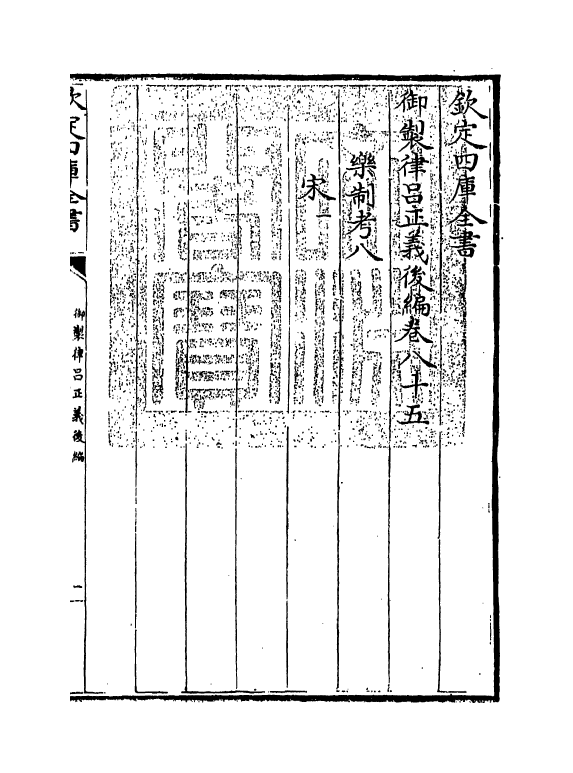 欽定四庫全書
御製律呂正義後編卷八十五
樂制考八
宋一
欽定四庫全書
御製律呂正義後編
一